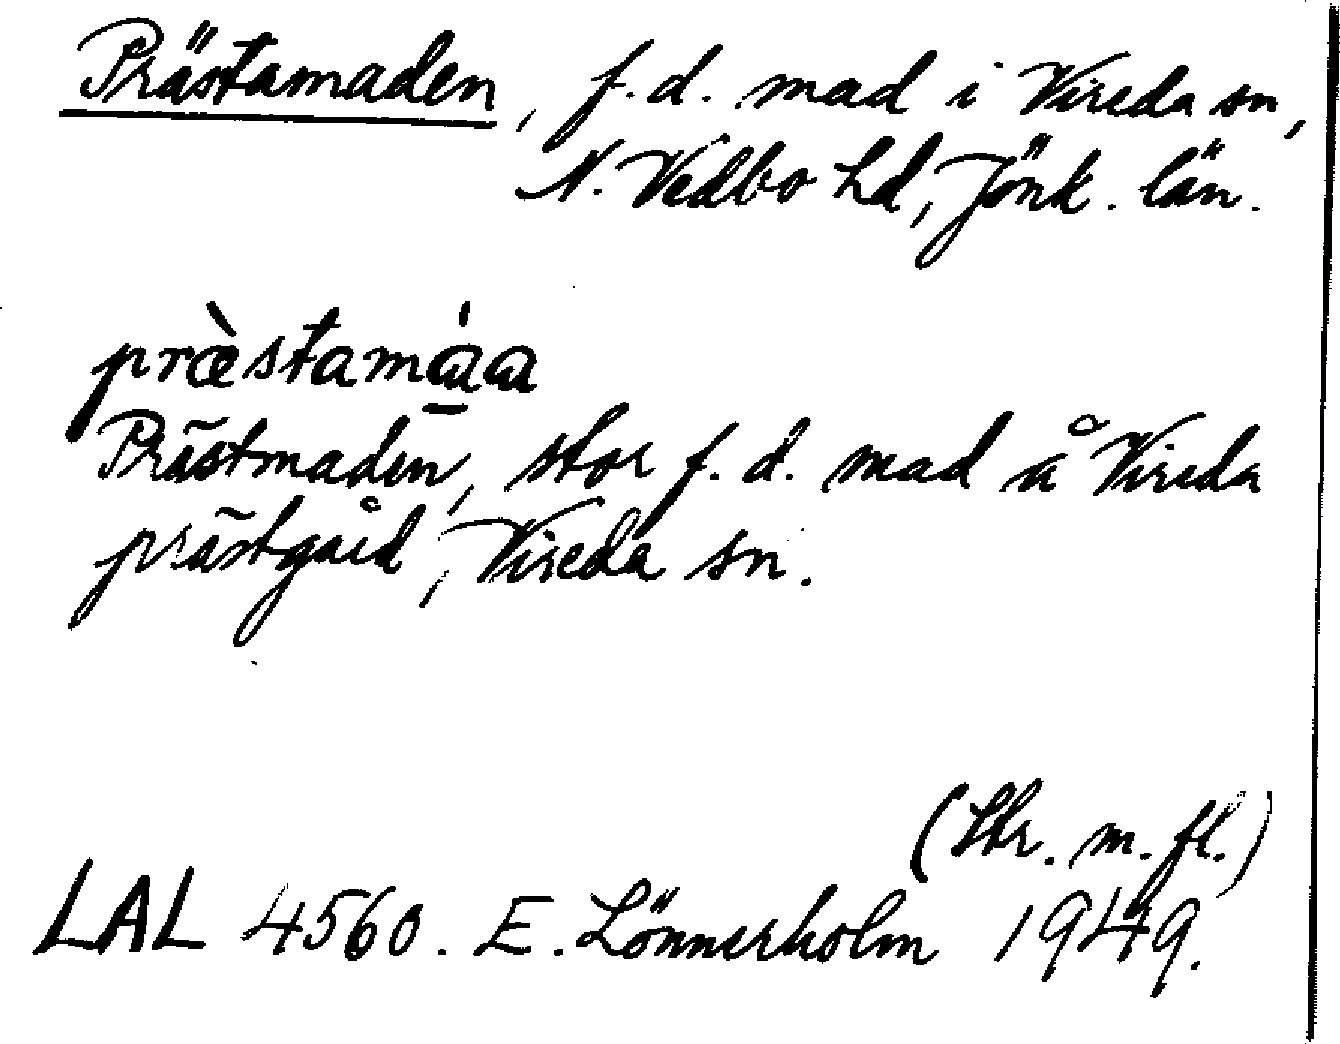 Prästamaden, f.d. mad i Vireda sn,
N. Vedbo hd, Jönk. län.
præ̀stama̱̍a
Prästmaden, stor f.d. mad å Vireda
prästgård, Vireda sn.
m.fl.)
LAL 4560. E. Lönnerholm 1949.